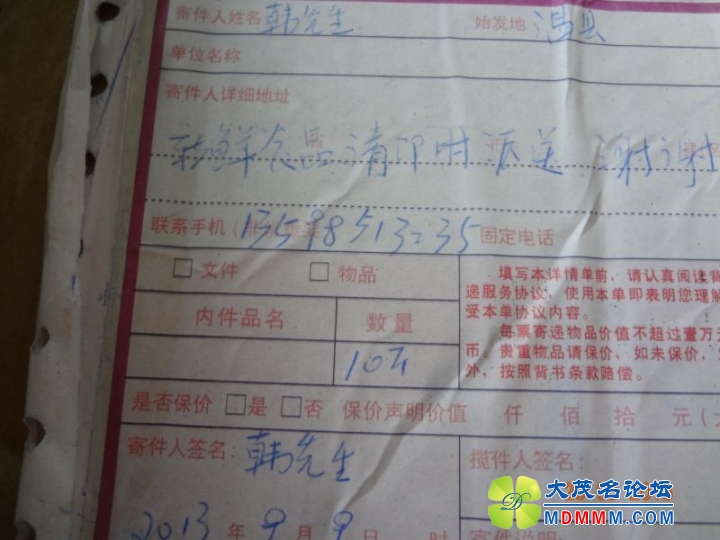 寄件人姓名 韩先生 始发地 温县
单位名称
寄件人详细地址
鲜食品请即时派送 谢谢
联系手机 固定电话
□ 文件 □ 物品
内件品名 数量
10斤
填写本详情单前，请认真阅读背
递服务协议，使用本单即表明您理解
受本单协议内容。
每票寄递物品价值不超过壹万
币。贵重物品请保价，如未保价，
外，按照背书条款赔偿。
是否保价 □是 □否 保价声明价值 仟 佰 拾 元
寄件人签名：韩先生 揽件人签名：
2013 年 9 月 9 日 时 寄件说明：
大茂名论坛
MDMMM.COM